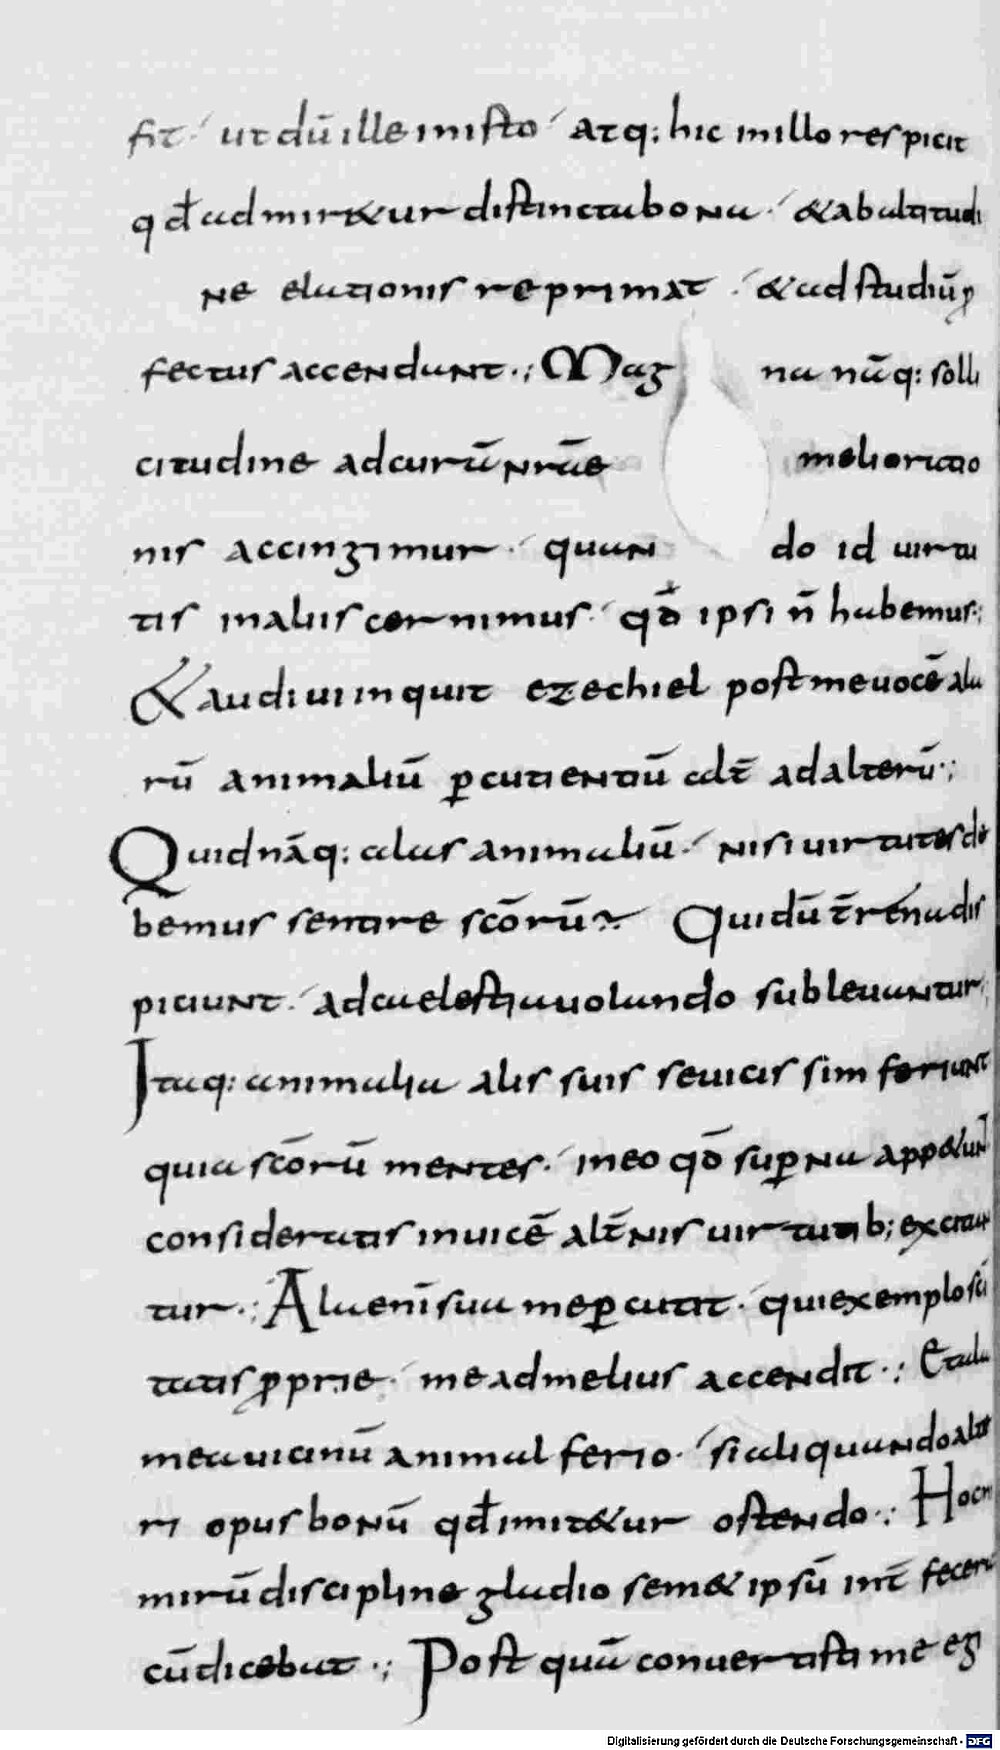 fit. ut dū ille in isto. atq; hic in illo respicit
qđ admir&ur distincta bona. & ab altitudi
ne elationis reprimat. & ad studiū ꝓ
fectus accendunt.; Mag na nāq; solli
citudine ad curū nrāe melioratio
nis accingimur. quan do id uirtu
tis in aliis cernimus. qđ ipsi n̄ habemus;
& audiui inquit ezechiel post me uocē ala
rū animaliū ꝑcutientiū alt̄ ad alterū.;
Quid nāq; alas animaliū. nisi uirtutes de
bemus sentire scōrū? Qui dū t̄rena dis
piciunt. ad caelestia uolando subleuantur;
Itaq; animalia alis suis se uicissim feriunt
quia scōrū mentes. in eo qđ suꝑna app&unt
consideratis inuicē alt̄nis uirtutib; excitan
tur.; Ala eni sua me ꝑcutit. qui exemplo sci
tatis ꝓprie. me ad melius accendit.; Et ala
mea uicinū animal ferio. si aliquando alte
ri opus bonū qđ imit&ur ostendo.; Hoc ni
mirū discipline gladio sem& ipsū int̄fecer
cū dicebat.; Post quā conuertisti me eg